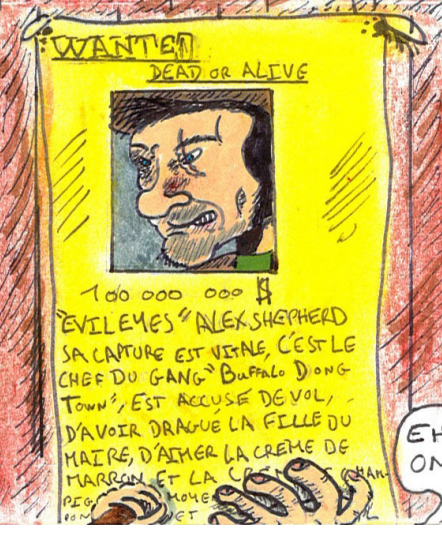 WANTED
DEAD OR ALIVE
100 000 000 $
"EVIL EYES" ALEX SHEPHERD
SA CAPTURE EST VITALE, C'EST LE
CHEF DU GANG "BUFFALO DONG
TOWN", EST ACCUSÉ DE VOL,
D'AVOIR DRAGUÉ LA FILLE DU
MAIRE, D'AIMER LA CREME DE
MARRON ET LA
ET
EH
ON